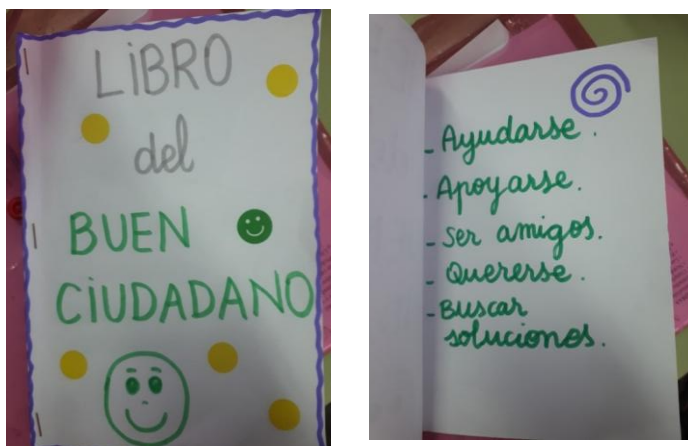 LiBRO
del
BUEN
CiUDADANO
- Ayudarse.
- Apoyarse.
- Ser amigos.
- Quererse.
- Buscar
soluciones.